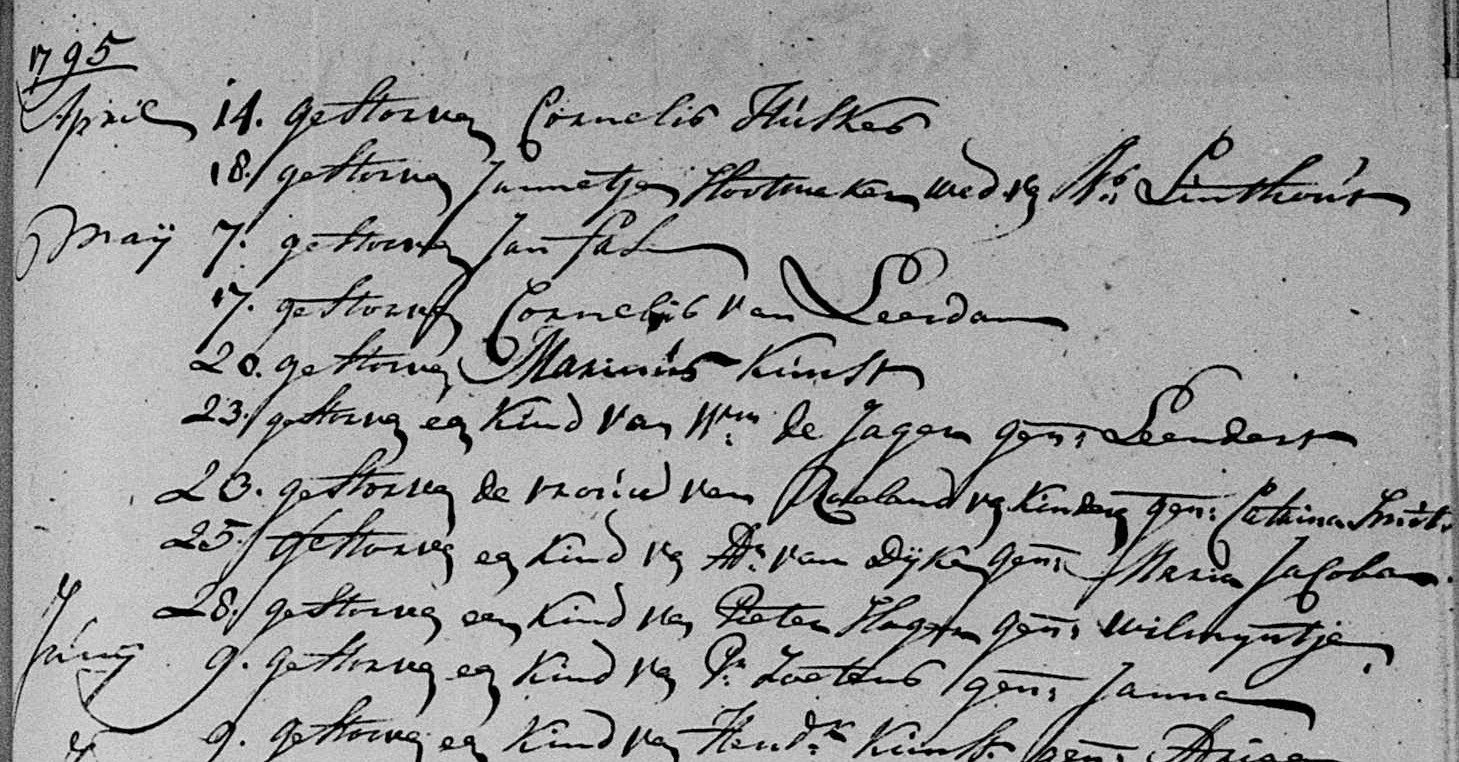 1795
April 14. gestorven Cornelis Huskes
18. gestorven Jannetje Hootmeken wed. vn Ns. Linthout
Maÿ 7. gestorven Jan
17. gestorven Cornelis van Leerdam
20. gestorven Marinus Kunst
23. gestorven een Kind van Wm. de Jager gen: Leendert
23. gestorven de vrouw van Roeland vn Kinderen gen: Catrina Smit
25. gestorven een Kind vn Ar. van Dijke gen: Maria Jacoba
28. gestorven een Kind van Pieter Hagen gen: Wilmyntje
Junij 9. gestorven een Kind vn Pr. Zoeteus gen: Janna
9. gestorven een Kind van Hendk. Kunst gen: